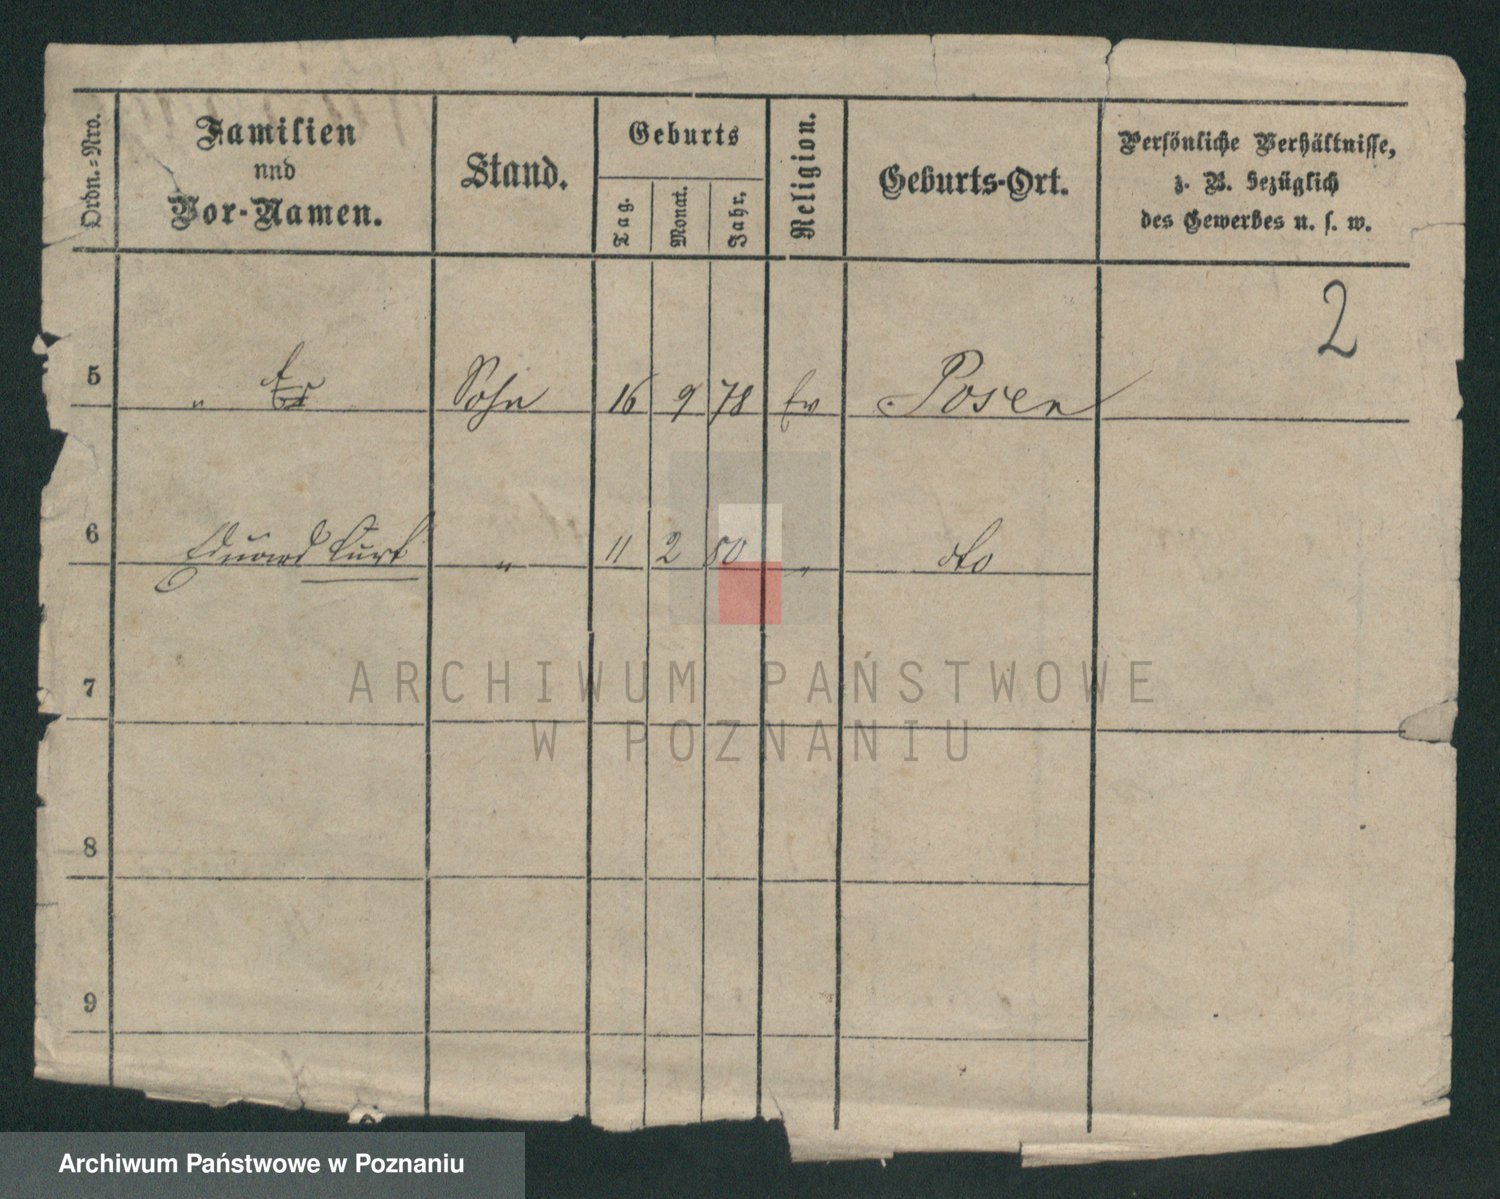 Ordn.=Nro.
Familien
und
Vor-Namen.
Stand.
Geburts
Tag.
Monat.
Jahr,
Religion.
Geburts-Ort.
Persönliche Verhältnisse,
z. B. bezüglich
des Gewerbes u. s. w.
2
5 " Sohn 16 9 78 Ev Posen
6 Eduard Curt " 11 2 80 " dto
7
8
9
ARCHIWUM PAŃSTWOWE
W POZNANIU
Archiwum Państwowe w Poznaniu